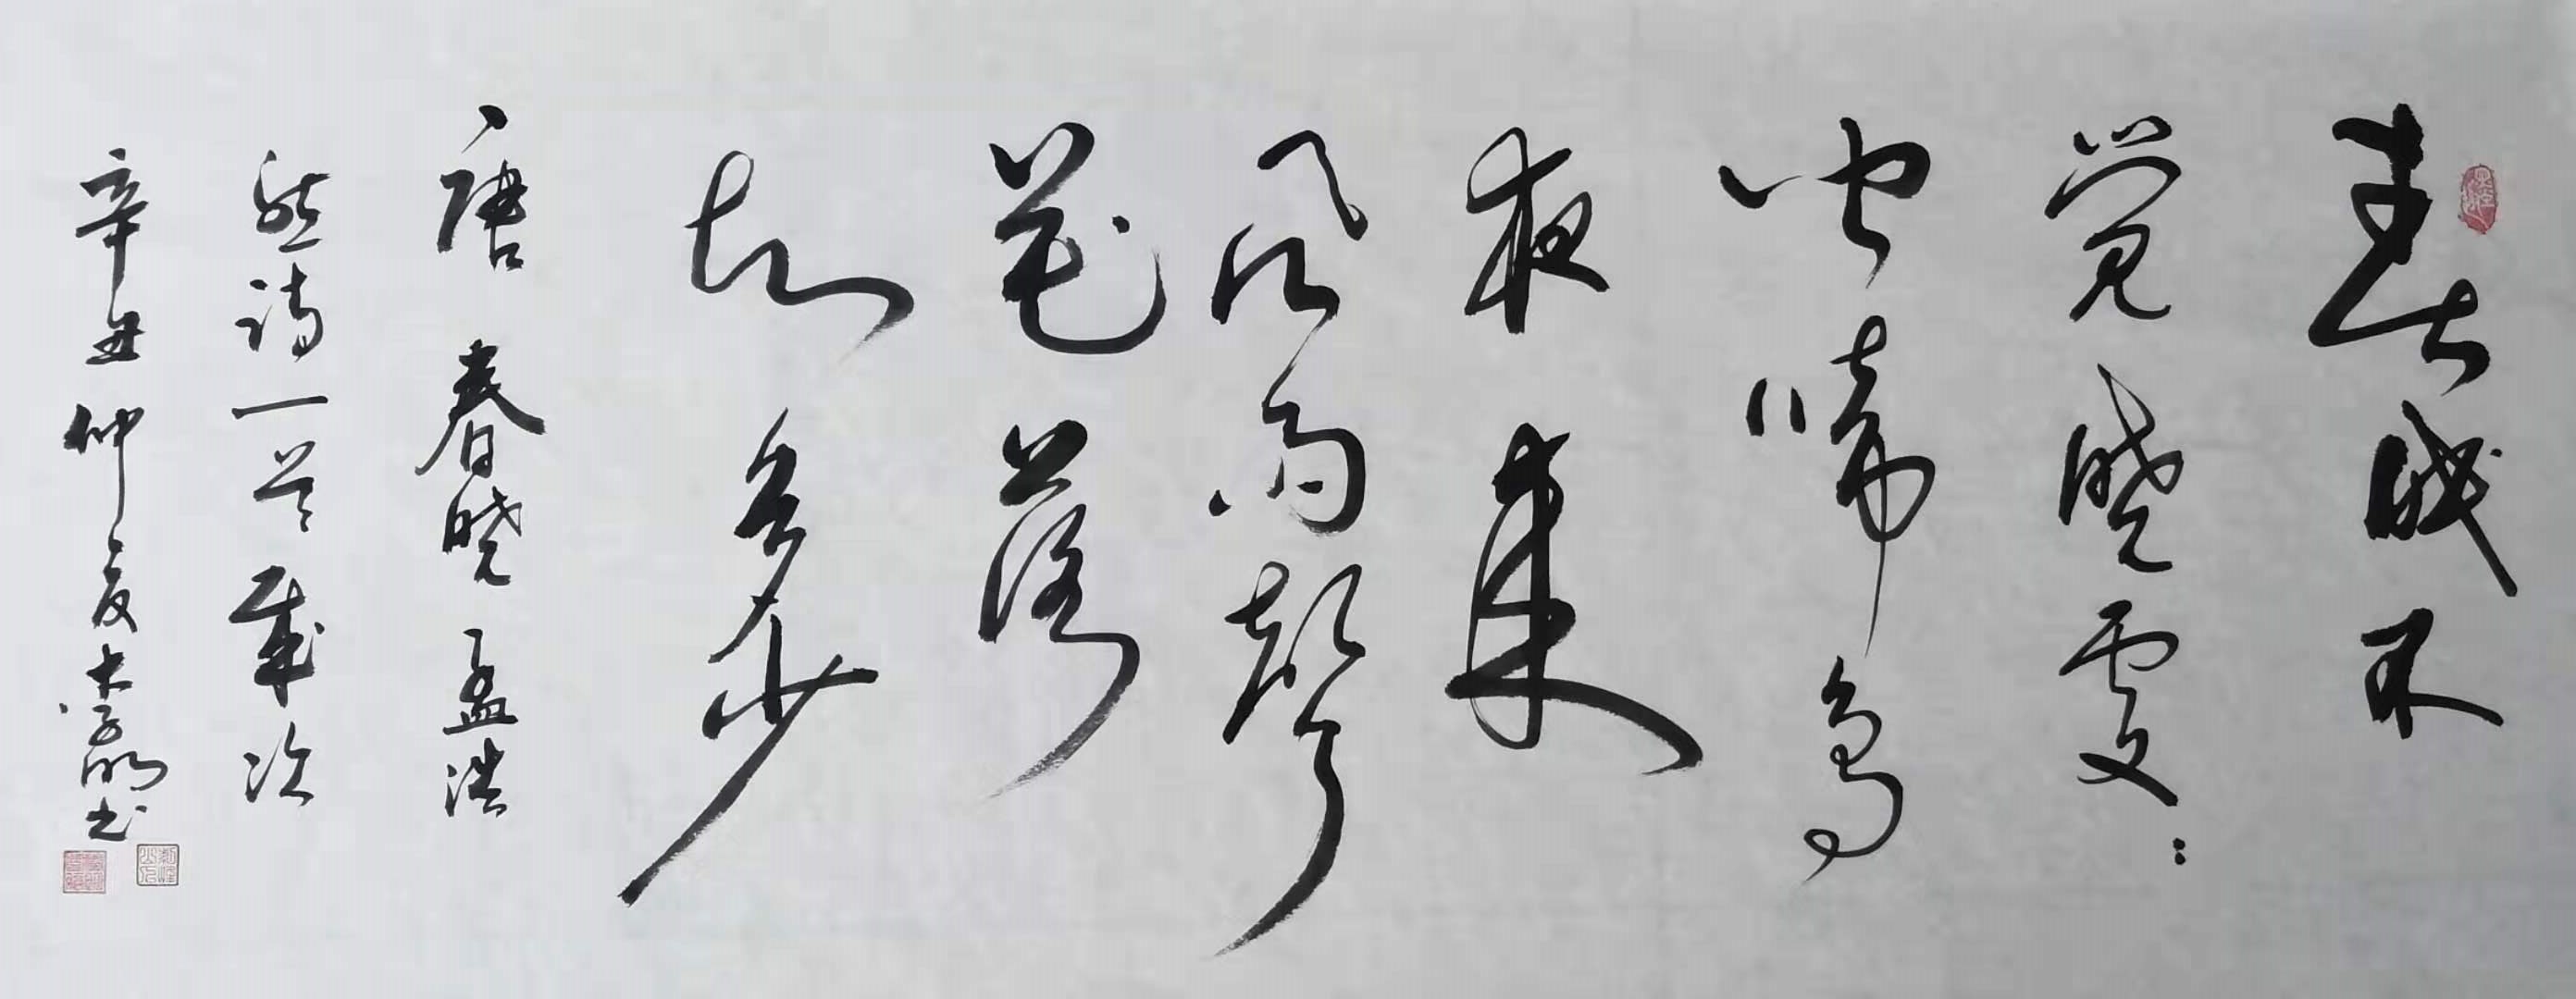 春眠不
觉晓处：
闻啼鸟
夜来
风雨声
花落
知多少
唐 春晓 孟浩
然诗一首 岁次
辛丑仲夏 李明书